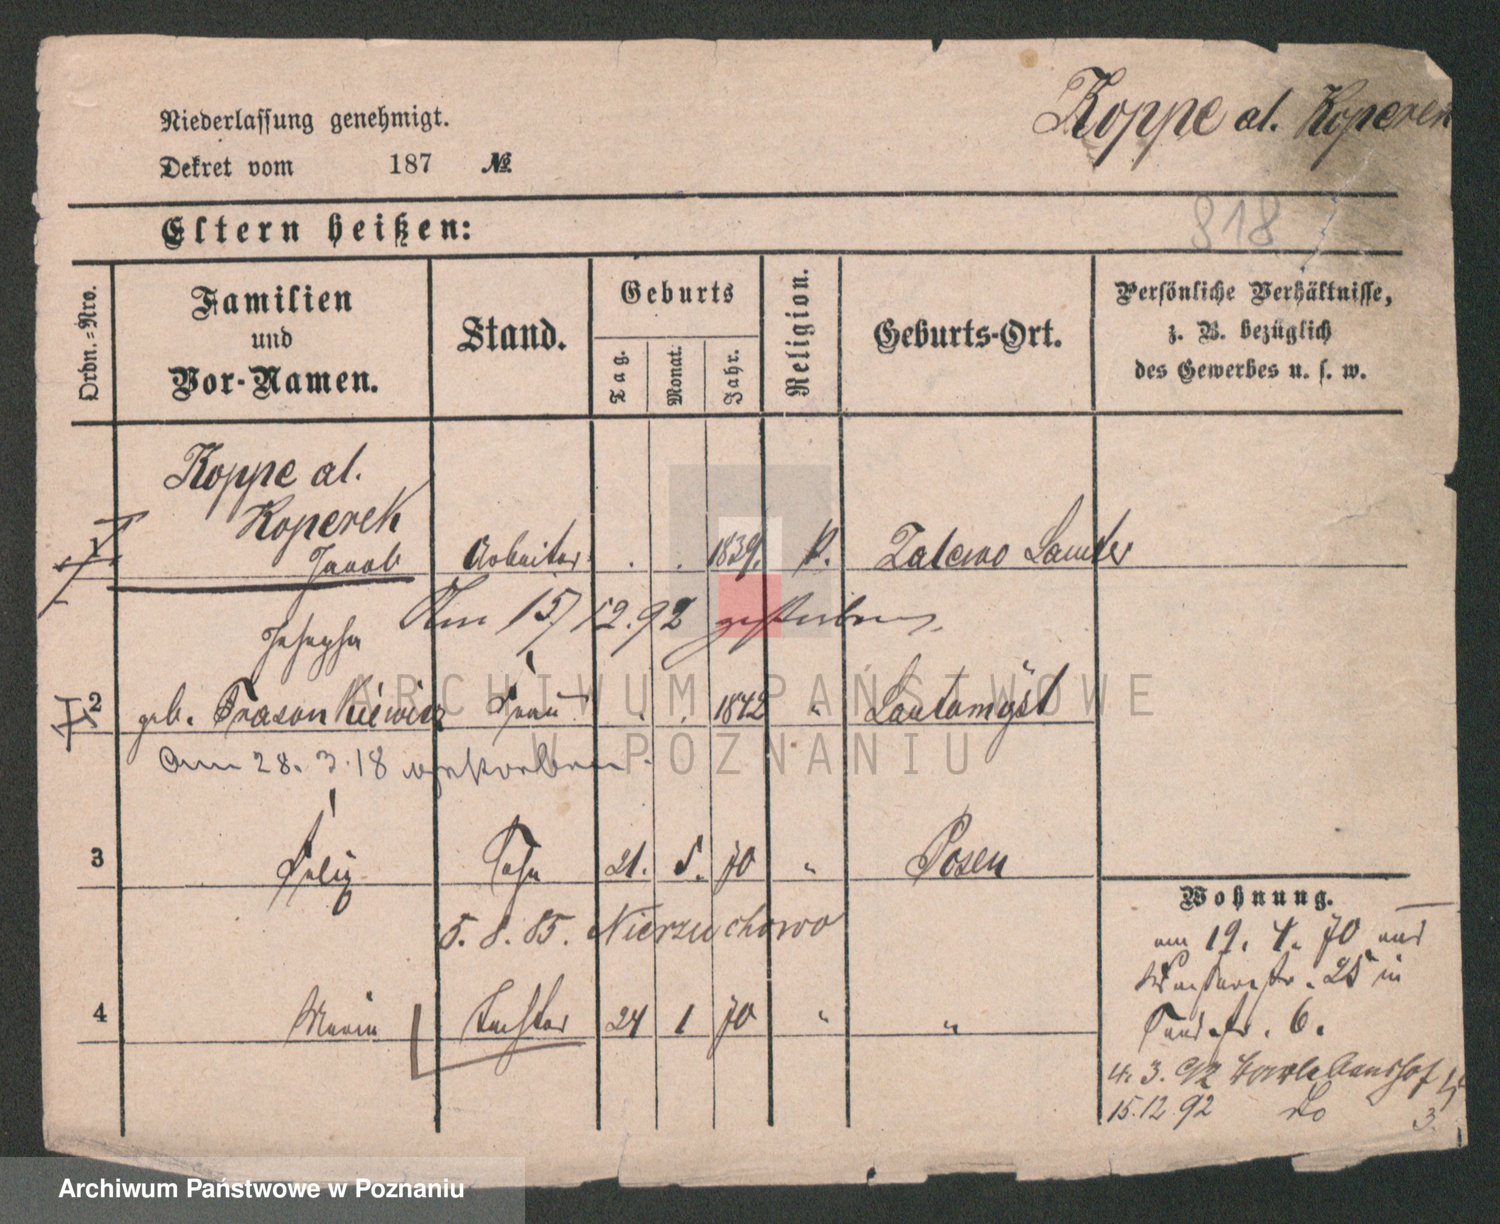 Koppe al. Koperek
Niederlassung genehmigt.
Dekret vom 187 №
818
Eltern heißen:
Ordn.-Nro.
Familien
und
Vor-Namen.
Stand.
Geburts
Tag.
Monat.
Jahr.
Religion.
Geburts-Ort.
Persönliche Verhältnisse,
z. B. bezüglich
des Gewerbes u. s. w.
Koppe al.
Koperek
1 Jacob Arbeiter . . 1839. k.
Am 15/12.92 gestorben.
Josepha
2 geb. Frau . . 1842 "
Am 28.3.18 gestorben.
3 Felix Sohn 21. 5. 70 " Posen
5. 8. 85. Nierzuchowo
4 Maria Tochter 24 1 70 " "
Wohnung.
am 19. 4. 70 aus
25 in
6.
4. 3. 92
15.12.92
3.
ARCHIWUM PAŃSTWOWE
W POZNANIU
Archiwum Państwowe w Poznaniu